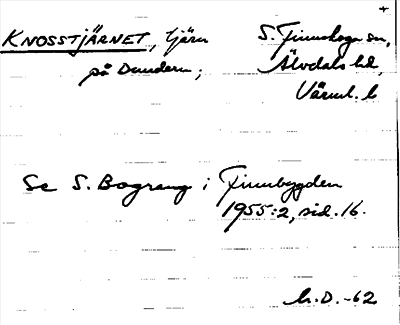 KNOSSTJÄRNET, tjärn
på Dundern;
S. Finnskoga sn,
Älvdals hd,
Värml. l.
Se S. Bograng i Finnbygden
1955:2, sid. 16.
h.D. -62